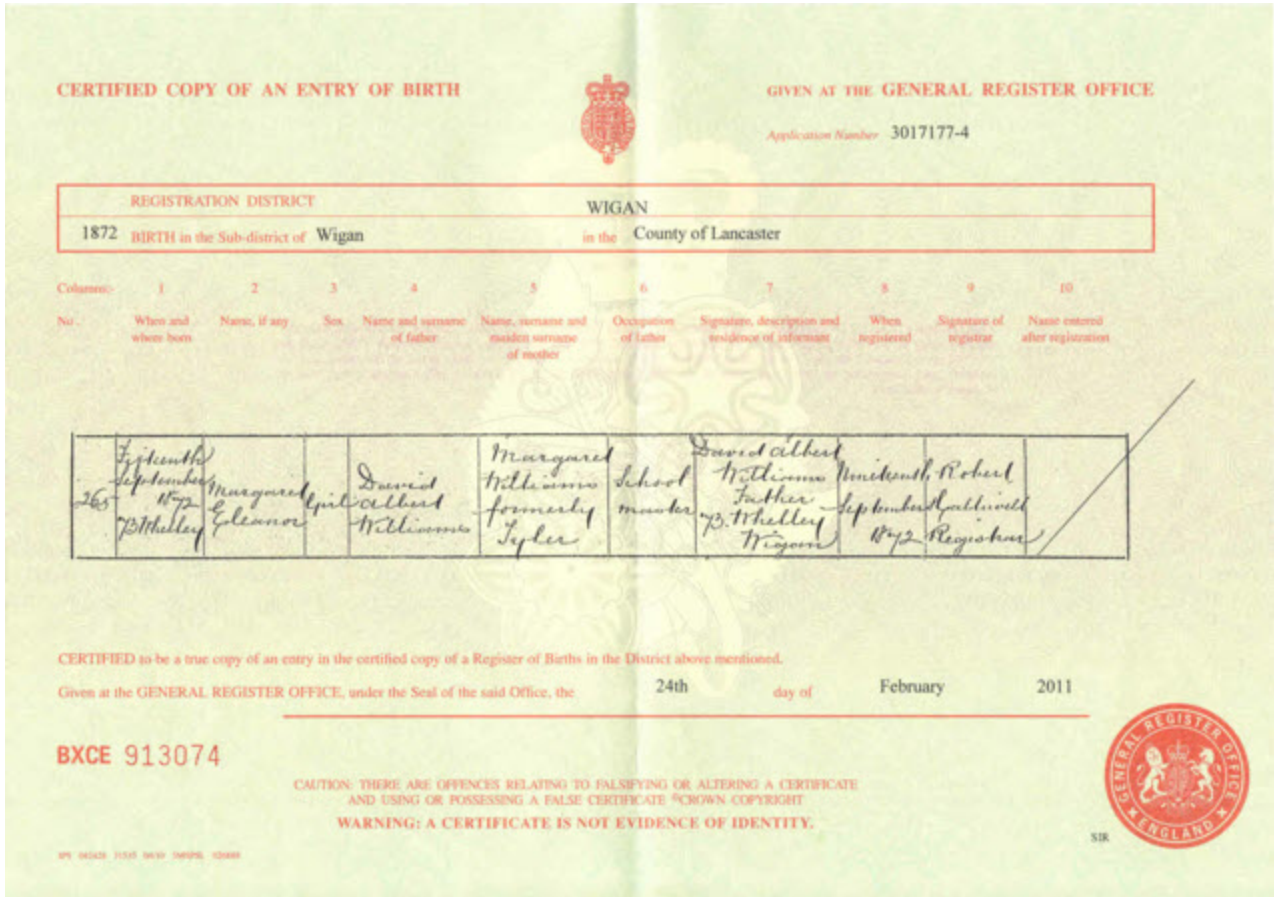 CERTIFIED COPY OF AN ENTRY OF BIRTH
GIVEN AT THE GENERAL REGISTER OFFICE
Application Number 3017177-4
REGISTRATION DISTRICT WIGAN
1872 BIRTH in the Sub-district of Wigan in the County of Lancaster
Columns:- 1 2 3 4 5 6 7 8 9 10
No. When and where born
Name, if any
Sex
Name and surname of father
Name, surname and maiden surname of mother
Occupation of father
Signature, description and residence of informant
When registered
Signature of registrar
Name entered after registration
265
Fifteenth
September
1872
B. Whelley
Margaret
Eleanor
Girl
David
Albert
Williams
Margaret
Williams
formerly
Tyler
School
master
David Albert
Williams
Father
B. Whelley
Wigan
Nineteenth
September
1872
Robert
Registrar
CERTIFIED to be a true copy of an entry in the certified copy of a Register of Births in the District above mentioned.
Given at the GENERAL REGISTER OFFICE, under the Seal of the said Office, the 24th day of February 2011
BXCE 913074
CAUTION: THERE ARE OFFENCES RELATING TO FALSIFYING OR ALTERING A CERTIFICATE
AND USING OR POSSESSING A FALSE CERTIFICATE ©CROWN COPYRIGHT
WARNING: A CERTIFICATE IS NOT EVIDENCE OF IDENTITY.
GENERAL REGISTER OFFICE
ENGLAND
SIR